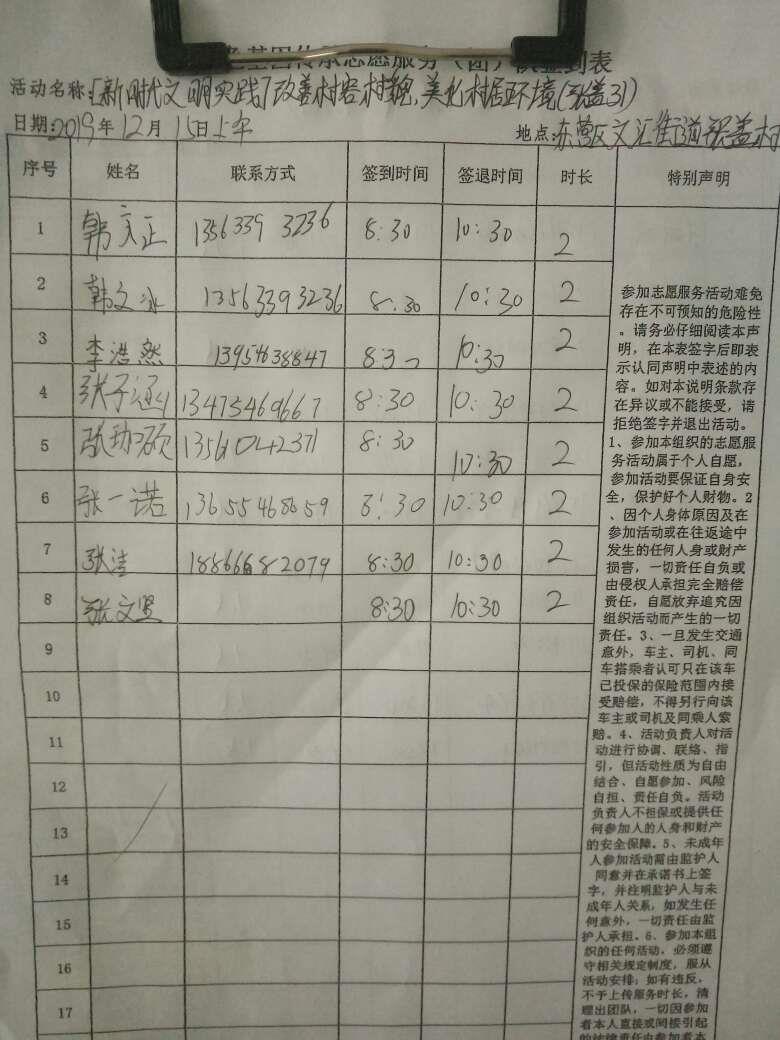 基因传承志愿服务（团）队签到表
活动名称:[新时代文明实践]改善村容村貌,美化村居环境(张盖31)
日期:2019年12月15日上午
地点:东营区文汇街道张盖村
序号 姓名 联系方式 签到时间 签退时间 时长 特别声明
1 韩文正 1356339 3236 8:30 10:30 2
2 韩文冰 13563393236 8:30 10:30 2
3 李浩然 13954638847 8:30 10:30 2
4 张子涵 13475469667 8:30 10:30 2
5 张 硕 13561042371 8:30 10:30 2
6 张一诺 13655468659 8:30 10:30 2
7 张洁 18866682079 8:30 10:30 2
8 张文贤 8:30 10:30 2
9
10
11
12
13
14
15
16
17
参加志愿服务活动难免
存在不可预知的危险性
。请务必仔细阅读本声
明，在本表签字后即表
示认同声明中表述的内
容。如对本说明条款存
在异议或不能接受，请
拒绝签字并退出活动。
1、参加本组织的志愿服
务活动属于个人自愿，
参加活动要保证自身安
全，保护好个人财物。2
、因个人身体原因及在
参加活动或在往返途中
发生的任何人身或财产
损害，一切责任自负或
由侵权人承担完全赔偿
责任，自愿放弃追究因
组织活动而产生的一切
责任。3、一旦发生交通
意外，车主、司机、同
车搭乘者认可只在该车
已投保的保险范围内接
受赔偿，不得另行向该
车主或司机及同乘人索
赔。4、活动负责人对活
动进行协调、联络、指
引，但活动性质为自由
结合、自愿参加、风险
自担、责任自负。活动
负责人不担保或提供任
何参加人的人身和财产
的安全保障。5、未成年
人参加活动需由监护人
同意并在承诺书上签
字，并注明监护人与未
成年人关系，如发生任
何意外，一切责任由监
护人承担。6、参加本组
织的任何活动，必须遵
守相关规定制度，服从
活动安排；如有违反，
不予上传服务时长，清
理出团队，一切因参加
着本人直接或间接引起
的法律责任由参加者本